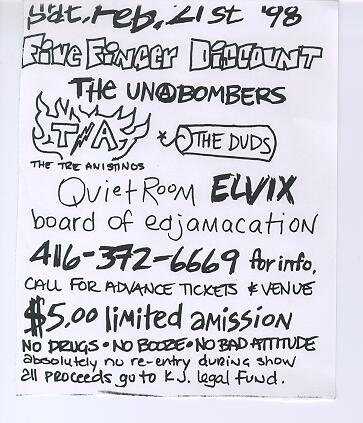 Sat, Feb, 21st '98
Five Finger Discount
THE UNABOMBERS
T/A * THE DUDS
THE TRE ANISTINOS
QUIET ROOM ELVIX
board of edjamacation
416-372-6669 for info.
CALL FOR ADVANCE TICKETS & VENUE
$5.00 limited amission
NO DRUGS • NO BOOZE • NO BAD ATTITUDE
absolutely no re-entry during show
all proceeds go to K.J. legal fund.